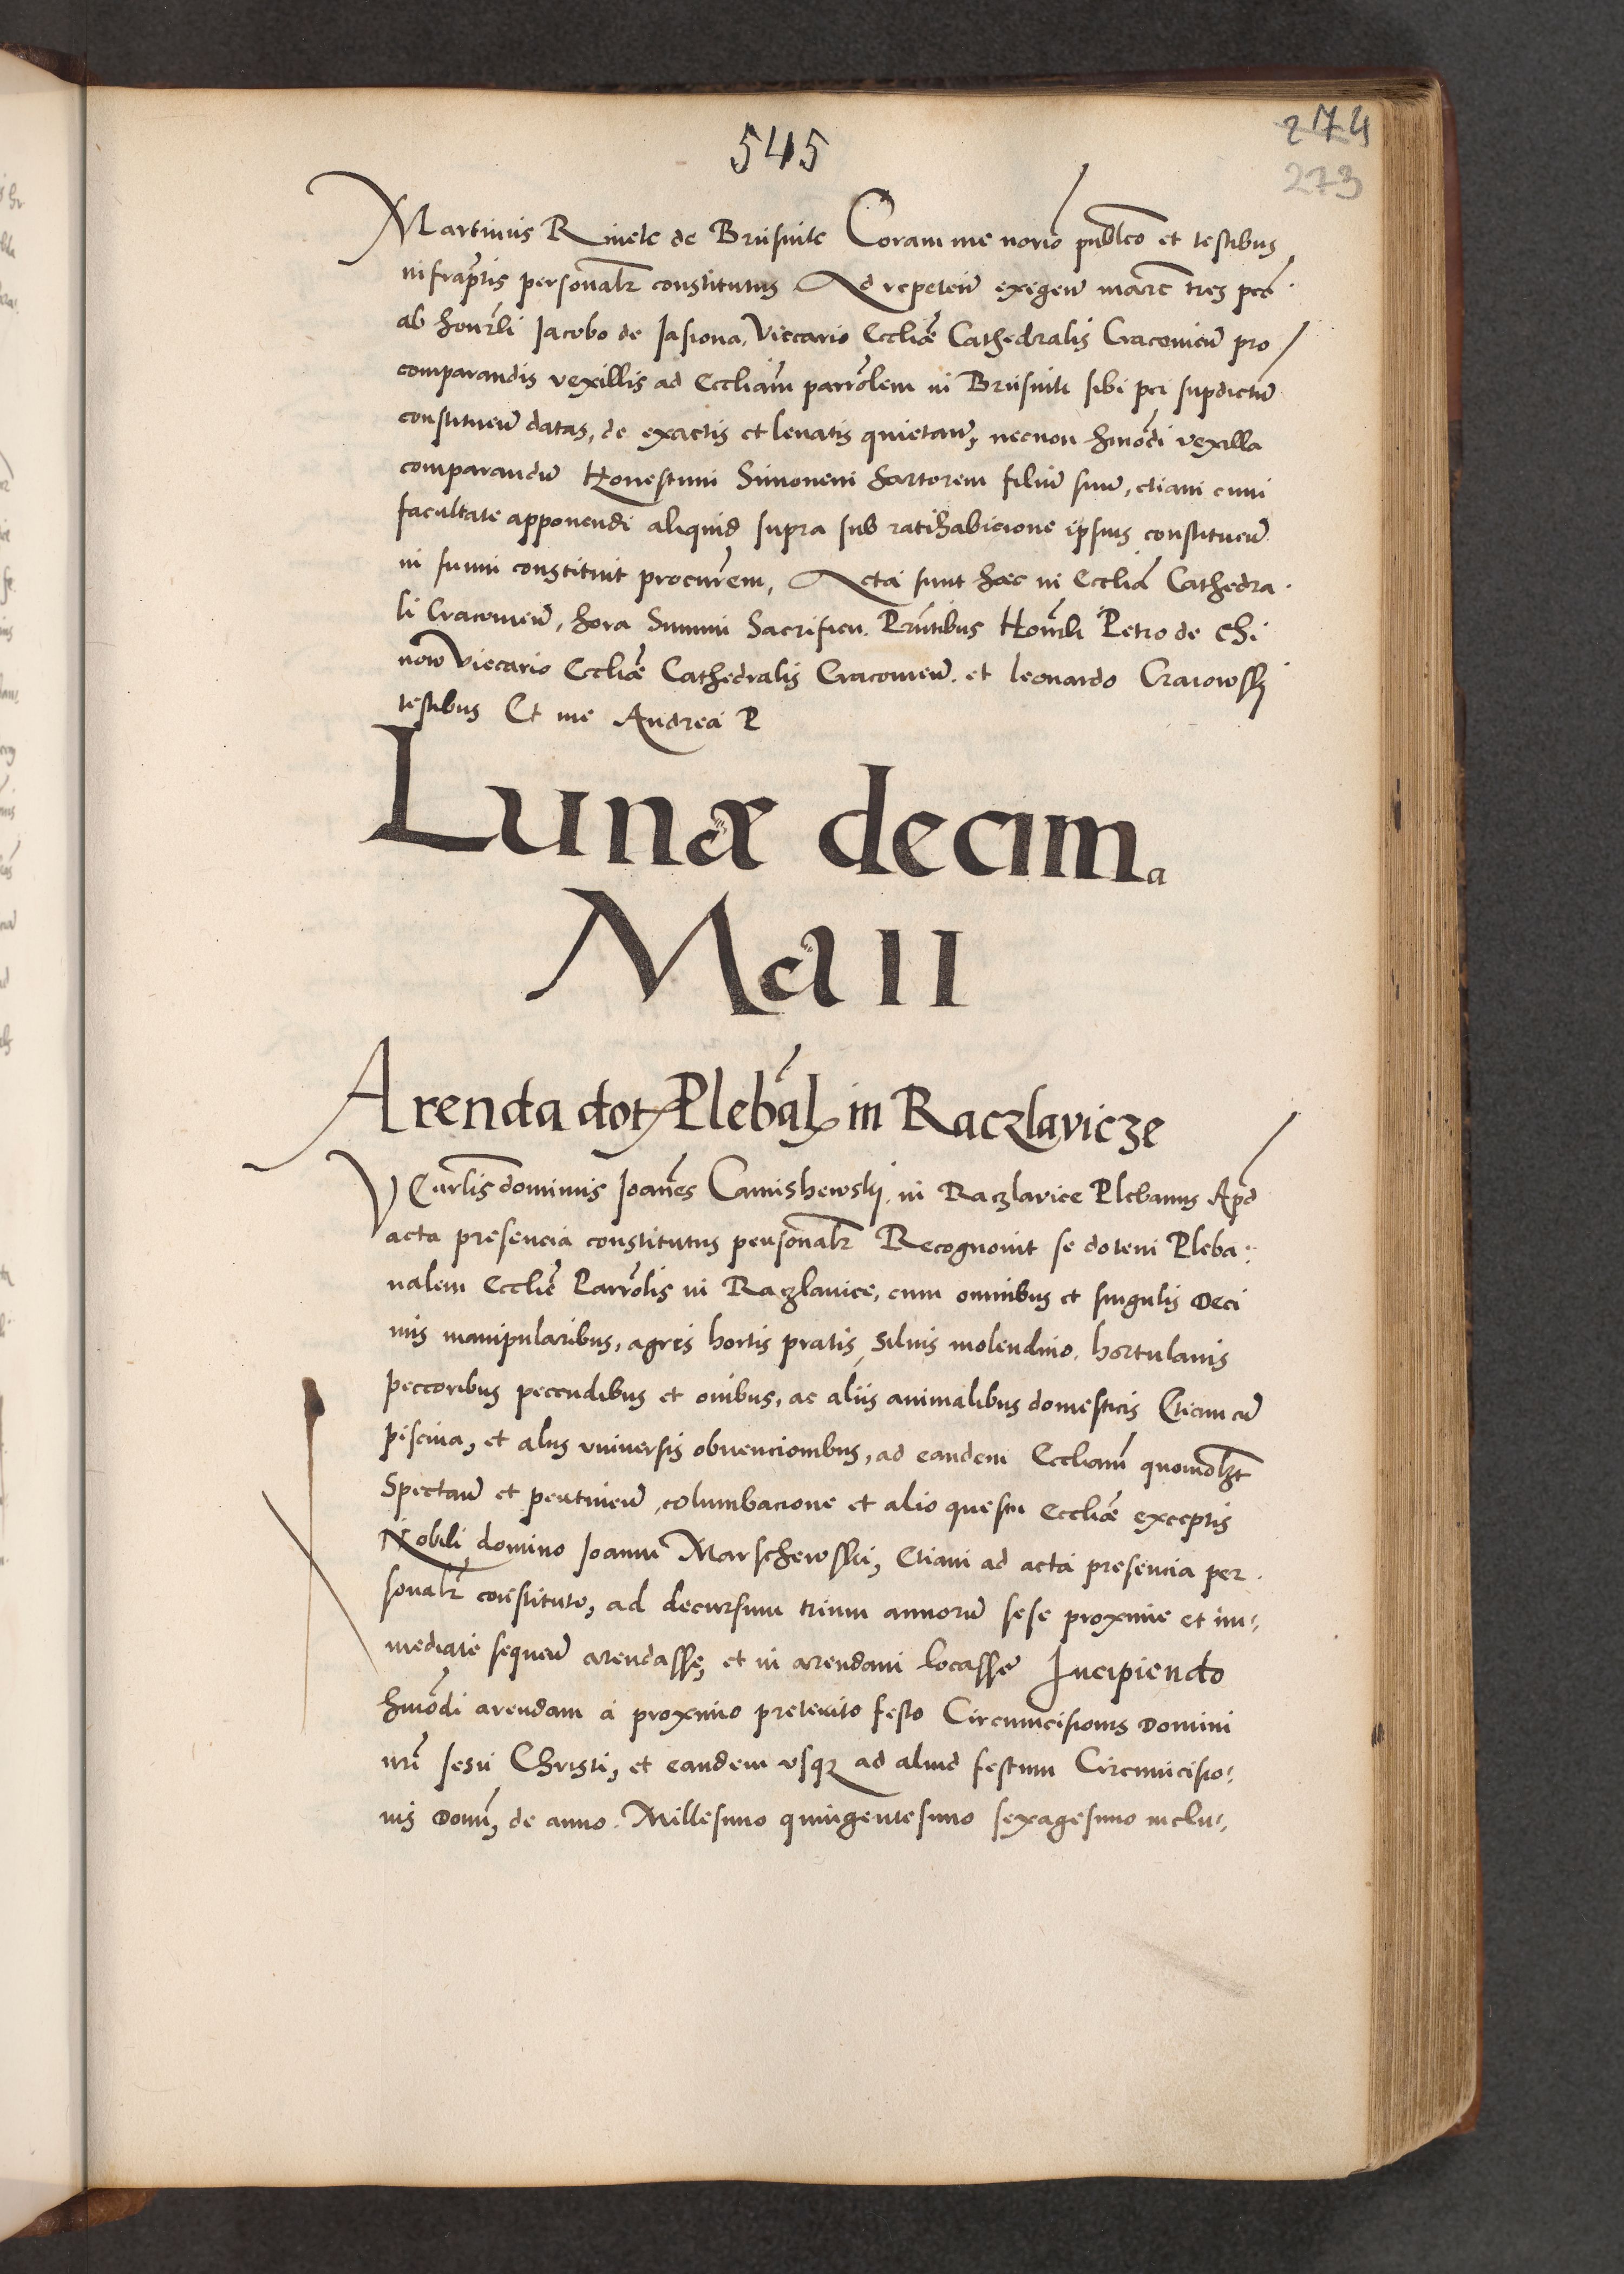 545
274
273
Martinus Rinele de Brusnik Coram me norio publco et testibus
infraptis personalr constitutus Ad repeten exigen marc tres pec
ab honrli Jacobo de Jasiona, Viccario Eccliae Cathedralis Cracovien pro
comparandis vexillis ad Eccliam parrolem in Brusnik sibi per supdictu
constituen datas, de exactis et levatis quietan, necnon hmodi vexilla
comparandu Honestum Simonem Sartorem filiu suu, etiam cum
facultate apponendi aliquid supra sub ratihabicione ipsius constituen
in suum constituit procurem, Acta sunt haec in Ecclia Cathedra
li Cracovien, hora Summi Sacrificii. Prntibus Honrli Petro de Chi
now Viccario Eccliae Cathedralis Cracovien. et Leonardo Czaiowskj
testibus Et me Andrea P
Lunæ decima
Maii
Arenda dot Plebal in Raczlavicze
VEnrlis dominus Joanes Camishewskj. in Raczlavice Plebanus Apd
acta presencia constitutus personalr Recognovit se dotem Pleba:
nalem Ecclie Parrolis in Raczlavice, cum omnibus et singulis Deci
mis manipularibus, agris hortis pratis, silvis molendino, hortulanis
peccoribus peccudibus et ovibus, ac aliis animalibus domesticis Etiam cu
piscina, et aliis universis obvencionibus, ad eandem Eccliam quomodlzt
Spectan et pertinen, columbacione et alio questu Eccliae exceptis
Nobili domino Joanni Marschewskj, Etiam ad acta presencia per
sonalr constituto, ad decursum trium annoru sese proxime et im:
mediate sequen arendasse, et in arendam locasse Incipiendo
hmodi arendam a proximo preterito festo Circumcisionis Domini
nri Jesu Christi, et eandem usq ad aliud festum Circumcisio:
nis Domi, de anno. Millesimo quingentesimo sexagesimo inclu: